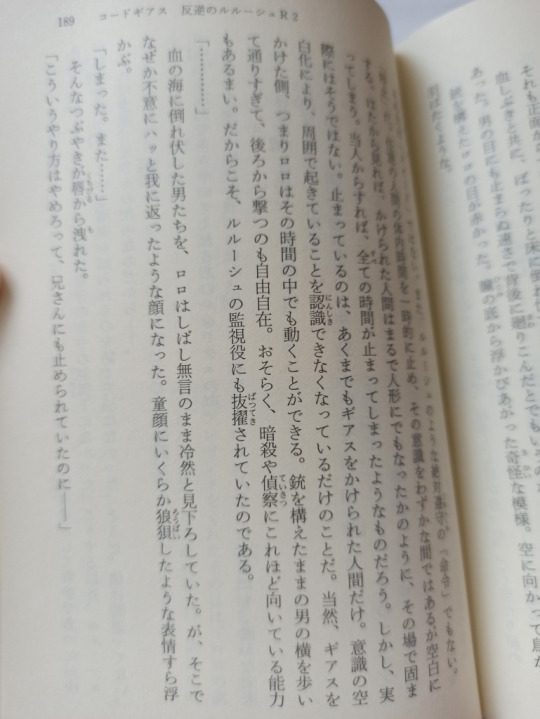 それも正面か
血しぶきと共に、ばったりと床に
あった。男の目にも止まらぬ速さで背後に廻りこんだとでもい
銃を構えたロロの目が赤かった。瞳の底から浮かびあがった奇怪な模様。空に向かって鳥が
羽ばたくような。
189 コードギアス 反逆のルルーシュR2
ルルーシュのような絶対遵守の「命令」でもない。
人間の体内時間を一時的に止め、その意識をわずかな間ではあるが空白に
する。はたから見れば、かけられた人間はまるで人形にでもなったかのように、その場で固ま
ってしまう。当人からすれば、全ての時間が止まってしまったようなものだろう。しかし、実
際にはそうではない。止まっているのは、あくまでもギアスをかけられた人間だけ。意識の空
白化により、周囲で起きていることを認識できなくなっているだけのことだ。当然、ギアスを
かけた側、つまりロロはその時間の中でも動くことができる。銃を構えたままの男の横を歩い
て通りすぎて、後ろから撃つのも自由自在。おそらく、暗殺や偵察にこれほど向いている能力
もあるまい。だからこそ、ルルーシュの監視役にも抜擢されていたのである。
「…………」
血の海に倒れ伏した男たちを、ロロはしばし無言のまま冷然と見下ろしていた。が、そこで
なぜか不意にハッと我に返ったような顔になった。童顔にいくらか狼狽したような表情すら浮
かぶ。
「しまった。また……」
そんなつぶやきが唇から洩れた。
「こういうやり方はやめろって、兄さんにも止められていたのに――」